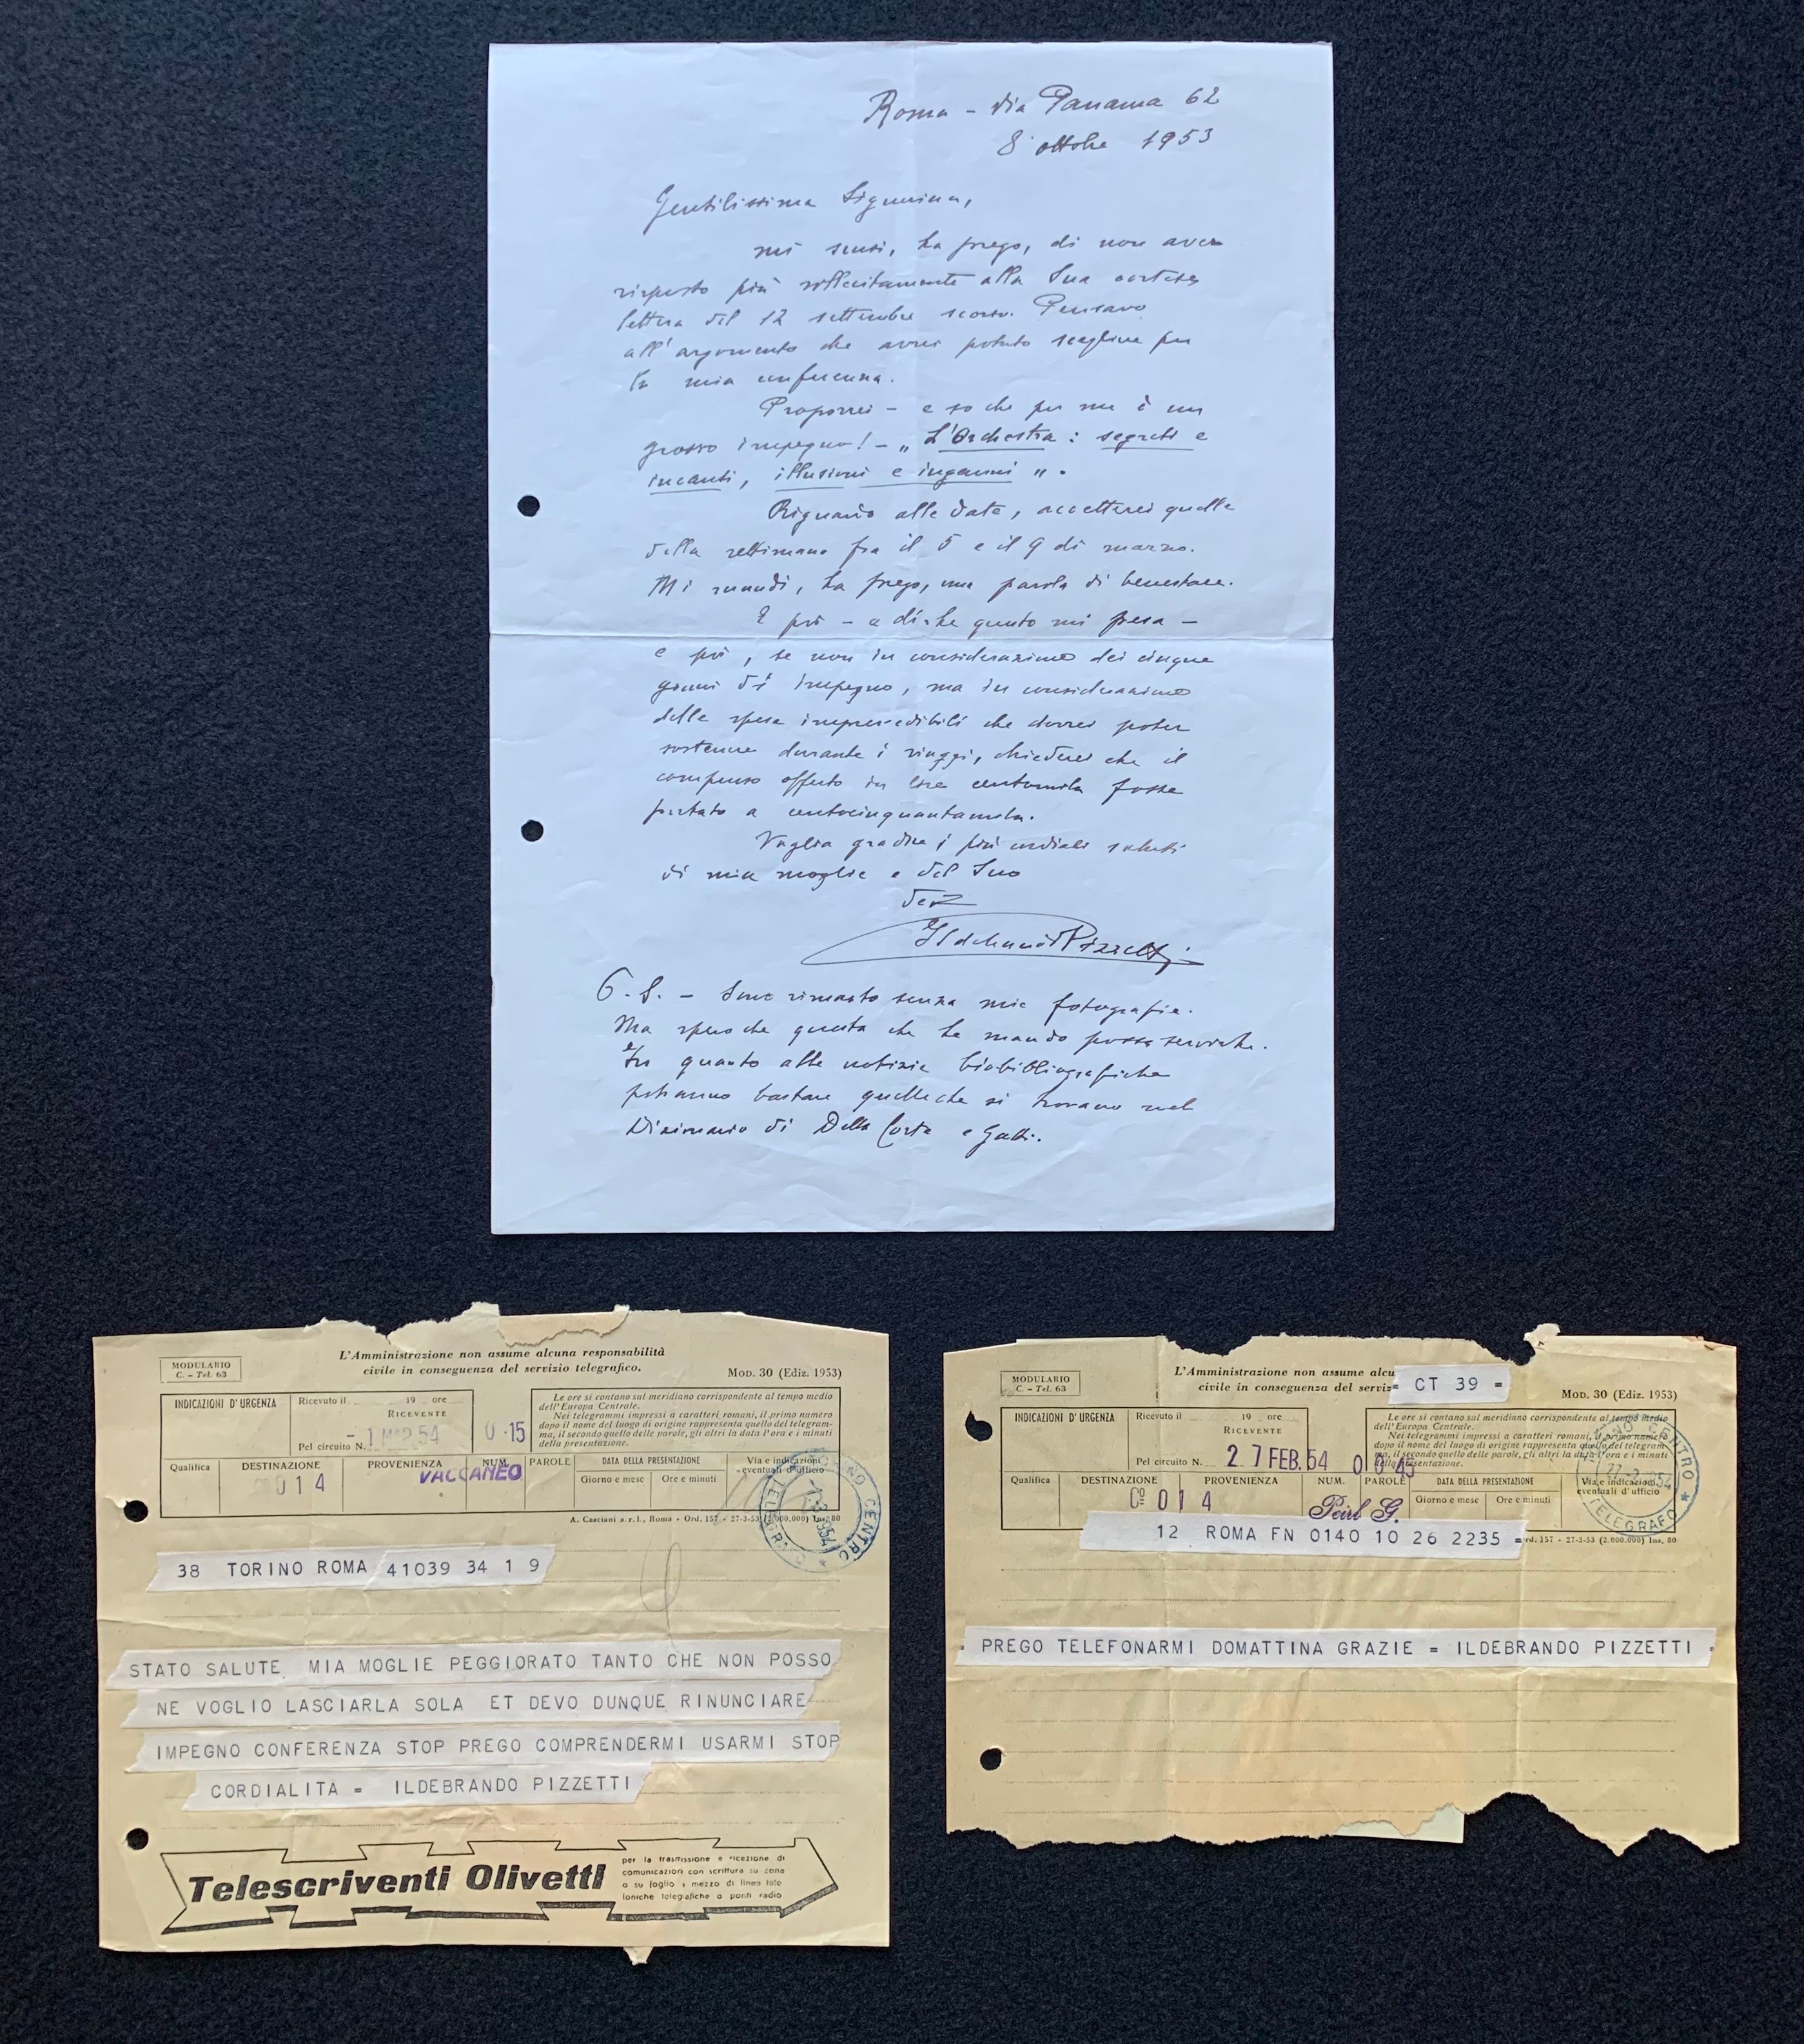 Roma - via Panama 62
8 ottobre 1953
Gentilissima Signorina,
mi scusi, La prego, di non aver
risposto più sollecitamente alla Sua cortese
lettera del 12 settembre scorso. Pensavo
all'argomento che avrei potuto scegliere per
la mia conferenza.
Proporrei - e so che per me è un
grosso impegno! - „L'Orchestra: segreti e
incanti, illusioni e inganni".
Riguardo alle date, accetterei quelle
della settimana fra il 5 e il 9 di marzo.
Mi mandi, La prego, una parola di benestare.
E poi - a dirLe quanto mi pesa -
e poi, se non in considerazione dei cinque
giorni di impegno, ma in considerazione
delle spese imprevedibili che dovrei poter
sostenere durante i viaggi, chiederei che il
compenso offerto in lire centomila fosse
portato a centocinquantamila.
Voglia gradire i più cordiali saluti
di mia moglie e del Suo
Ildebrando Pizzetti
P.S. - Sono rimasto senza mie fotografie.
Ma spero che questa che Le mando possa servirLe.
In quanto alle notizie biobibliografiche
potranno bastare quelle che si trovano nel
Dizionario di Della Corte e Gatti.
MODULARIO
C. - Tel. 63
L'Amministrazione non assume alcuna responsabilità
civile in conseguenza del servizio telegrafico.
MOD. 30 (Ediz. 1953)
INDICAZIONI D'URGENZA
Ricevuto il 19 ore
RICEVENTE
Pel circuito N.
- 1 MAR 54
0 15
Le ore si contano sul meridiano corrispondente al tempo medio
dell'Europa Centrale.
Nei telegrammi impressi a caratteri romani, il primo numero
dopo il nome del luogo di origine rappresenta quello del telegram-
ma, il secondo quello delle parole, gli altri la data l'ora e i minuti
della presentazione.
Qualifica DESTINAZIONE PROVENIENZA NUM. PAROLE DATA DELLA PRESENTAZIONE Via e indicazioni
eventuali d'ufficio
Giorno e mese Ore e minuti
014
VACCANEO
A. Casciani s.r.l., Roma - Ord. 157 - 27-3-53 (2.000.000) Ins. 80
38 TORINO ROMA 41039 34 1 9
STATO SALUTE MIA MOGLIE PEGGIORATO TANTO CHE NON POSSO
NE VOGLIO LASCIARLA SOLA ET DEVO DUNQUE RINUNCIARE
IMPEGNO CONFERENZA STOP PREGO COMPRENDERMI USARMI STOP
CORDIALITA = ILDEBRANDO PIZZETTI
Telescriventi Olivetti
per la trasmissione e ricezione di
comunicazioni con scrittura su zona
o su foglio a mezzo di linee tele
foniche telegrafiche o ponti radio
MODULARIO
C. - Tel. 63
L'Amministrazione non assume alcu
civile in conseguenza del serviz
= CT 39 =
MOD. 30 (Ediz. 1953)
INDICAZIONI D'URGENZA
Ricevuto il 19 ore
RICEVENTE
Pel circuito N.
27 FEB. 54 0 0 45
Le ore si contano sul meridiano corrispondente al tempo medio
dell'Europa Centrale.
Nei telegrammi impressi a caratteri romani, il primo numero
dopo il nome del luogo di origine rappresenta quello del telegram-
ma, il secondo quello delle parole, gli altri la data l'ora e i minuti
della presentazione.
Qualifica DESTINAZIONE PROVENIENZA NUM. PAROLE DATA DELLA PRESENTAZIONE Via e indicazioni
eventuali d'ufficio
Giorno e mese Ore e minuti
Cº 014
TORINO CENTRO
TELEGRAFO
12 ROMA FN 0140 10 26 2235 =
rd. 157 - 27-3-53 (2.000.000) Ins. 80
PREGO TELEFONARMI DOMATTINA GRAZIE = ILDEBRANDO PIZZETTI